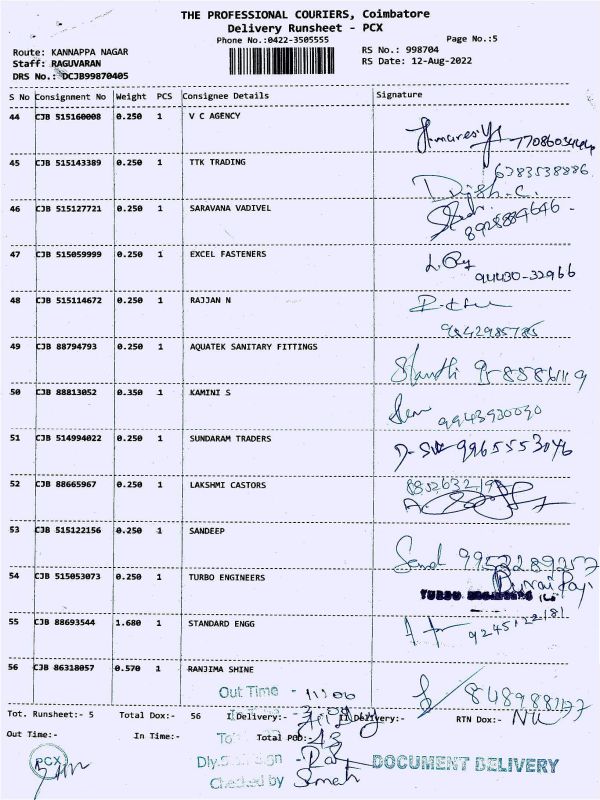 THE PROFESSIONAL COURIERS, Coimbatore
Delivery Runsheet - PCX
Phone No.:0422-3505555
Page No.:5
Route: KANNAPPA NAGAR
RS No.: 998704
Staff: RAGUVARAN
RS Date: 12-Aug-2022
DRS No.: DCJB99870405
S No Consignment No Weight PCS Consignee Details Signature
44 CJB 515160008 0.250 1 V C AGENCY
45 CJB 515143389 0.250 1 TTK TRADING
6783538886
46 CJB 515127721 0.250 1 SARAVANA VADIVEL
8928884646
47 CJB 515059999 0.250 1 EXCEL FASTENERS
94430-32966
48 CJB 515114672 0.250 1 RAJJAN N
9842985785
49 CJB 88794793 0.250 1 AQUATEK SANITARY FITTINGS
50 CJB 88813052 0.350 1 KAMINI S
9943930030
51 CJB 514994022 0.250 1 SUNDARAM TRADERS
9965553046
52 CJB 88665967 0.250 1 LAKSHMI CASTORS
53 CJB 515122156 0.250 1 SANDEEP
Sand 9952289257
54 CJB 515053073 0.250 1 TURBO ENGINEERS
55 CJB 88693544 1.680 1 STANDARD ENGG
9245122181
56 CJB 86318057 0.570 1 RANJIMA SHINE
Out Time - 11:00
Tot. Runsheet:- 5 Total Dox:- 56 I Delivery:- II Delivery:- RTN Dox:- Nil
Out Time:- In Time:- Total POD:- 43
PCX
Checked by
DOCUMENT DELIVERY